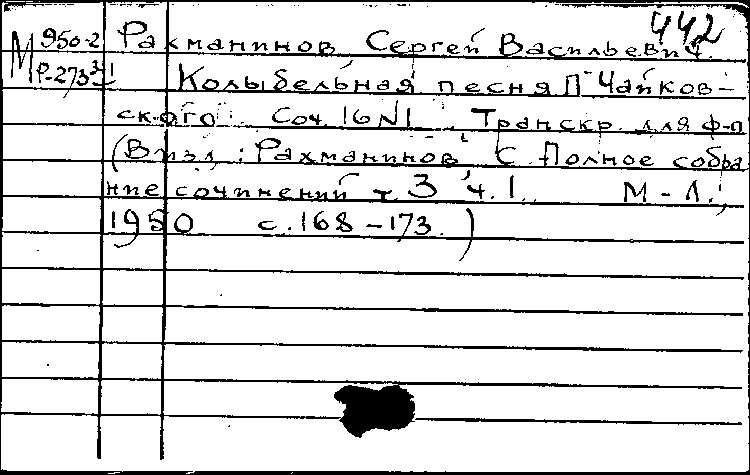 442
М 950-2 Рахманинов Сергей Васильевич.
Р-273 Колыбельная песня П Чайков-
ского. Соч. 16 N1. Транскр. для ф-п
(В изд.: Рахманинов С. Полное собра
ние сочинений т. 3 ч. 1. М-Л.,
1950 с. 168-173.)